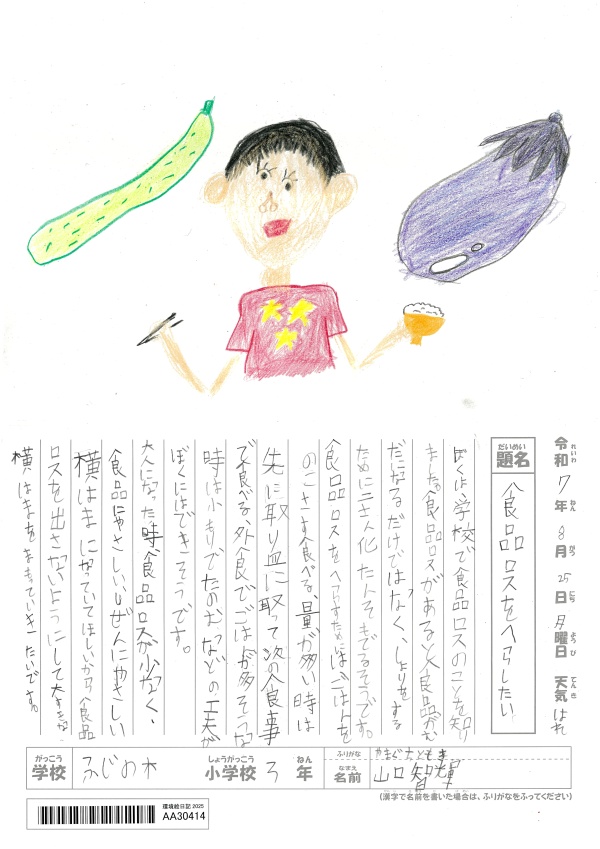 令和7年8月25日月曜日 天気はれ
れいわ ねん がつ にち ようび てんき
だいめい
題名
食品ロスをへらしたい
ぼくは、学校で食品ロスのことを知り
ました。食品ロスがあると、食品がむ
だになるだけではなく、しょりをする
ために二さん化たんそもでるそうです。
食品ロスをへらすためにはごはんを
のこさず食べる、量が多い時は
先に取り皿に取って次の食事
で食べる、外食でごはんが多そうな
時は小もりでたのむなどの工夫が
ぼくにはできそうです。
大人になった時、食品ロスが少なく、
食品にやさしい、しぜんにやさしい
横はまになっていてほしいから食品
ロスを出さないようにして大すきな
横はまをまもっていきたいです。
がっこう
学校
ふじの木
しょうがっこう
小学校
3
ねん
年
ふりがな
やまぐちともき
なまえ
名前
山口智輝
(漢字で名前を書いた場合は、ふりがなをふってください)
環境絵日記 2025
AA30414